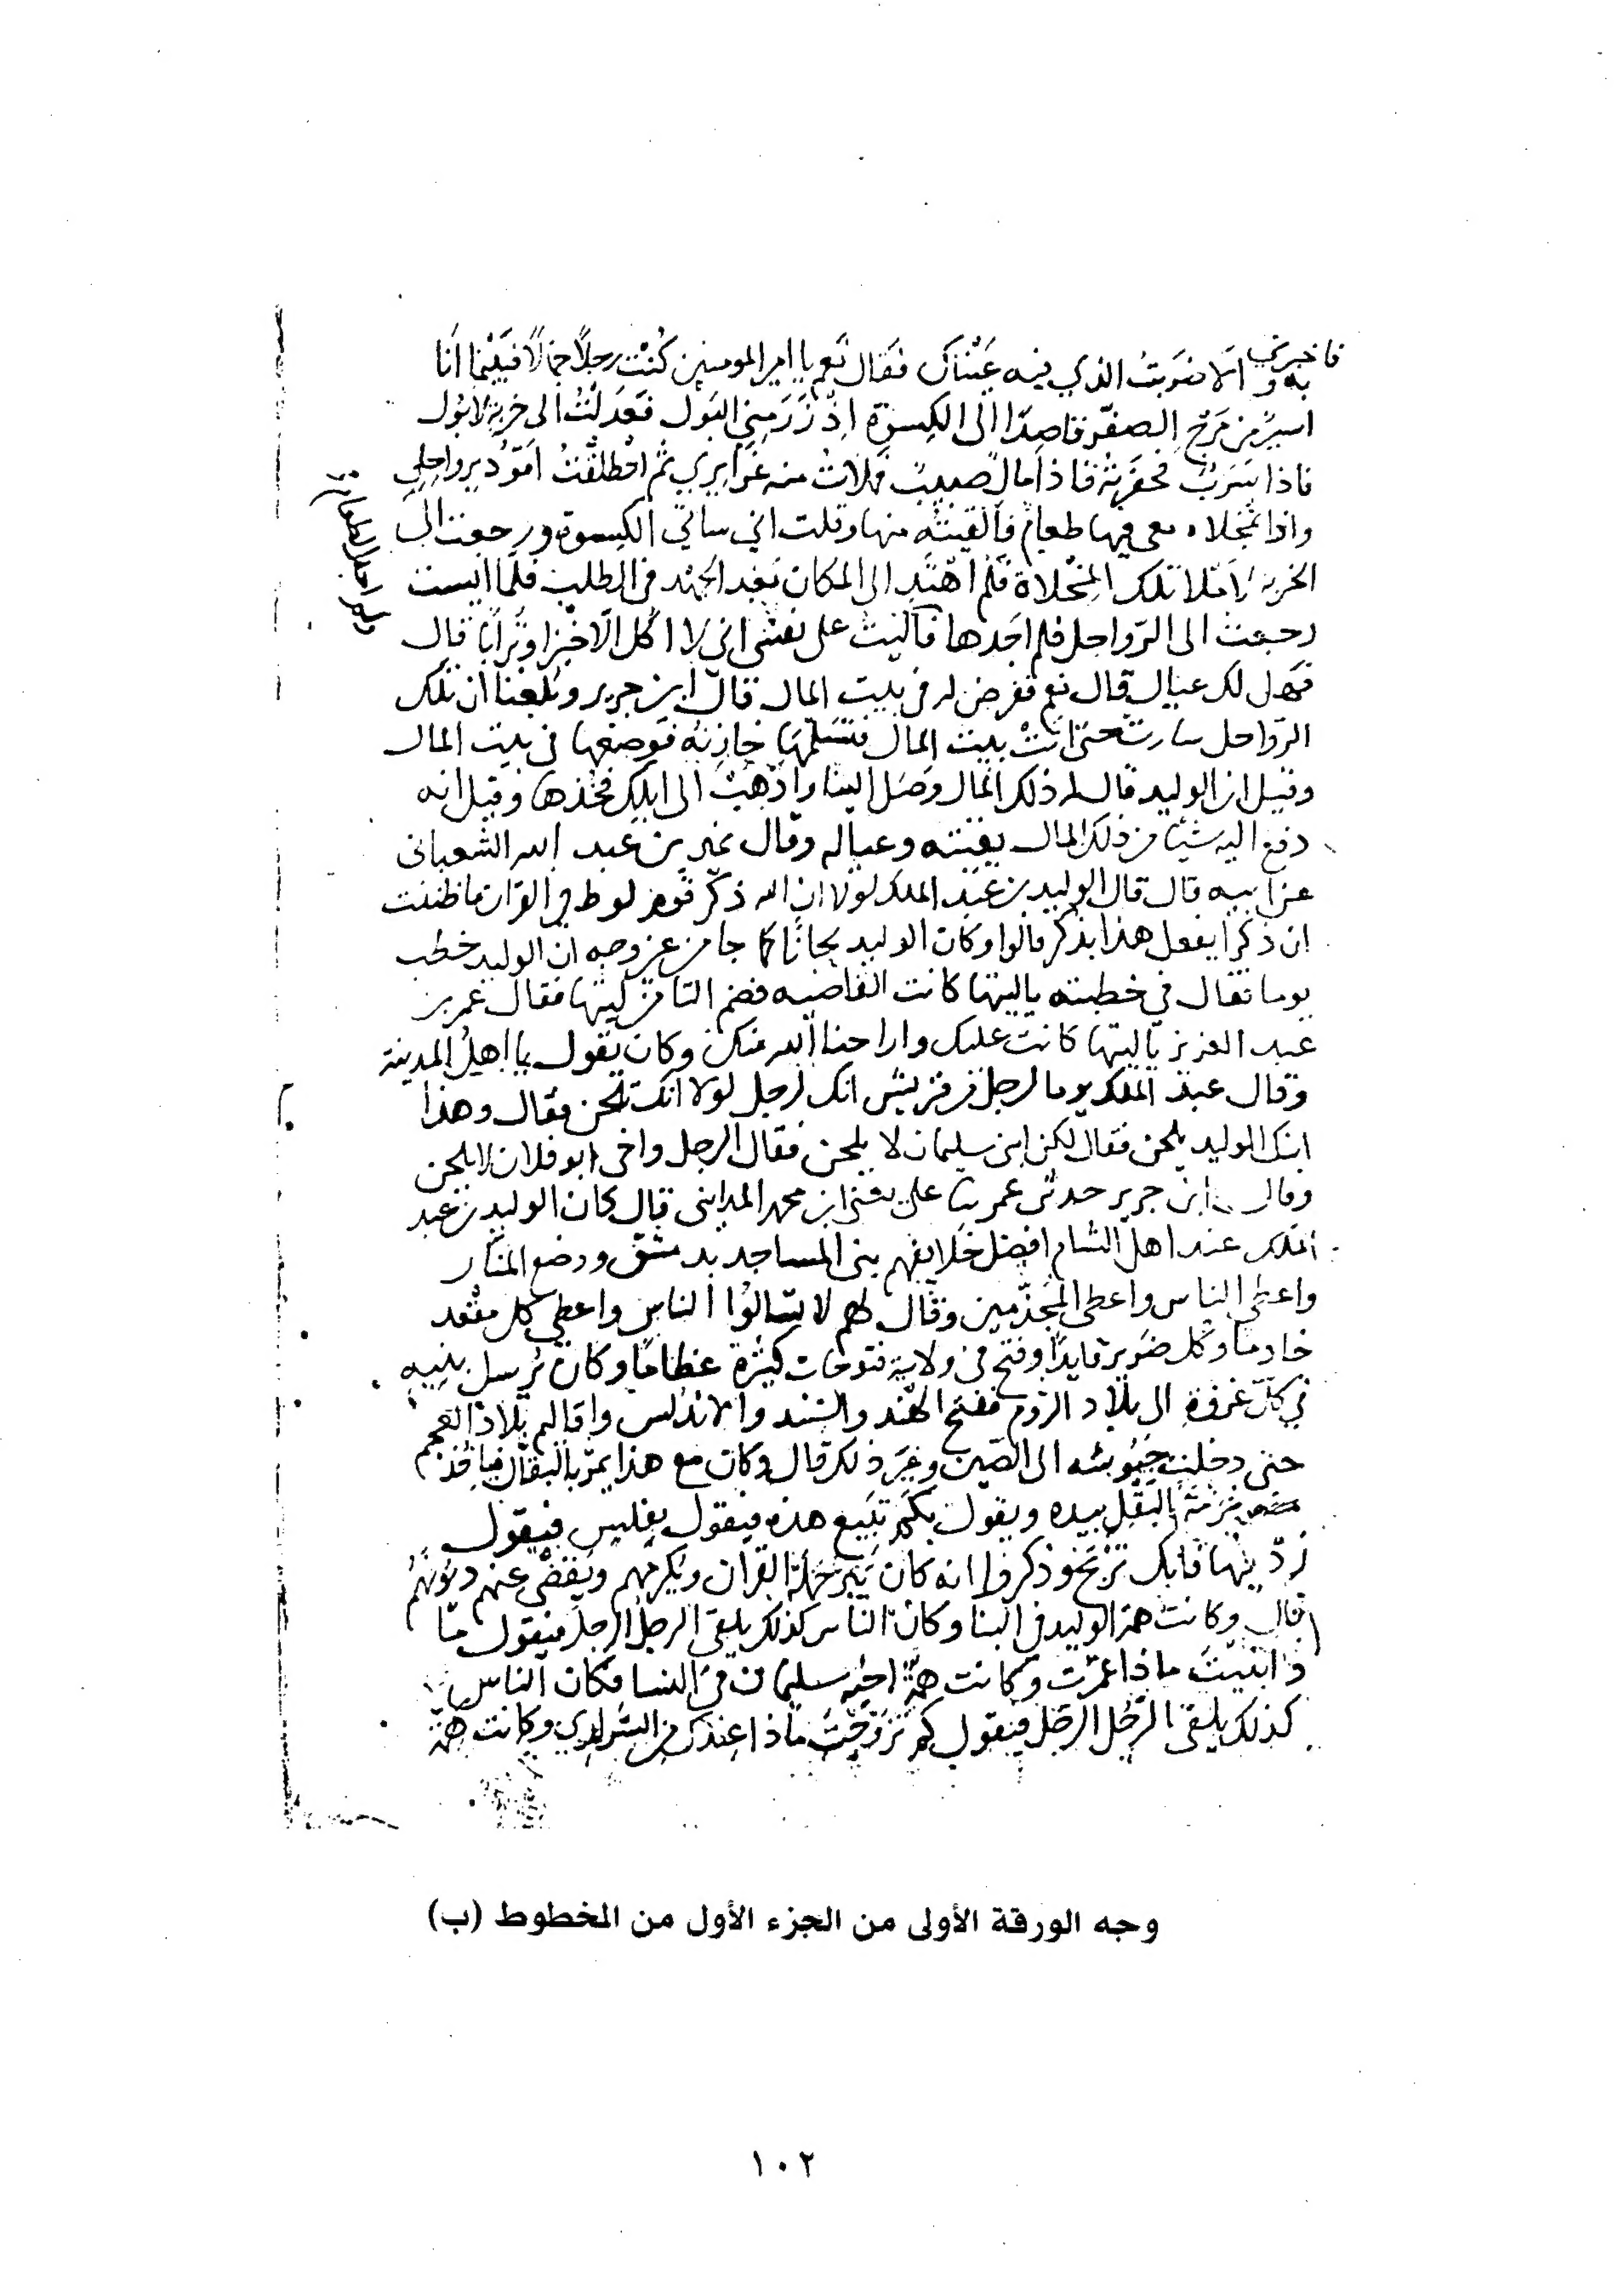 فاخبرني
به والا ضربت الذي فيه عيناك فقال نعم يا امير المومنين كنت رجلا جمالا فبينما انا
اسير من مرج الصفر قاصدا الى الكسوة اذ زرمني البول فعدلت الى خربة لابول
فاذا سرب فحفرته فاذا مال صبيب فملات منه غرايري ثم انطلقت اقود برواحلي
واذا بمخلاه معي فيها طعام فالقيته منها وقلت اني ساتي الكسوة ورجعت الى
الخربة لاملا تلك المخلاة فلم اهتد الى المكان بعد الجهد في الطلب فلما ايست
رجعت الى الرواحل فلم اجدها ولم اجد الطعام
فاليت على نفسي اني لا اكل الا خبزا وترابا قال
فهل لك عيال قال نعم ففرض له في بيت المال قال ابن جرير وبلغنا ان تلك
الرواحل سارت حتى اتت بيت المال فتسلمها خازنه فوضعها في بيت المال
وقيل ان الوليد قال له ذلك المال وصل الينا واذهب الى ابلك فخذها وقيل انه
دفع اليه شيا من ذلك المال يقيته وعياله وقال نمير بن عبد الله الشعباني
عن ابيه قال قال الوليد بن عبد الملك لولا ان الله ذكر قوم لوط في القران ما ظننت
ان ذكرا يفعل هذا بذكر قالوا وكان الوليد لحانا كما جا من غير وجه ان الوليد خطب
يوما فقال في خطبته ياليتها كانت القاضيه فضم التا من ليتها فقال عمر بن
عبد العزيز ياليتها كانت عليك واراحنا الله منك وكان يقول يا اهل المدينة
وقال عبد الملك يوما لرجل من قريش انك لرجل لولا انك تلحن فقال وهذا
ابنك الوليد يلحن فقال لكن ابني سليمان لا يلحن فقال الرجل واخي ابو فلان لا يلحن
وقال ابن جرير حدثني عمر ثنا علي يعني ابن محمد المدايني قال كان الوليد بن عبد
الملك عند اهل الشام افضل خلايفهم بنى المساجد بدمشق ووضع المنار
واعطى الناس واعطى المجذمين وقال لهم لا تسالوا الناس واعطى كل مقعد
خادما وكل ضرير قايدا وفتح في ولايته فتوحات كثيرة عظاما وكان يرسل بنيه
في كل غزوة الى بلاد الروم ففتح الهند والسند والاندلس واقاليم بلاد العجم
حتى دخلت جيوشه الى الصين وغير ذلك قال وكان مع هذا يمر بالبقال فياخذ
حزمة البقل بيده ويقول بكم تبيع هذه فيقول بفلس فيقول
زد فيها فانك تربح وذكروا انه كان يبر حملة القران ويكرمهم ويقضي عنهم ديونهم
قال وكانت همة الوليد في البنا وكان الناس كذلك يلقى الرجل الرجل فيقول ما
ذا بنيت ماذا عمرت وكانت همة اخيه سليمان في النسا فكان الناس
كذلك يلقى الرجل الرجل فيقول كم تزوجت ماذا عندك من السراري وكانت همة
وجه الورقة الأولى من الجزء الأول من المخطوط (ب)
١٠٢